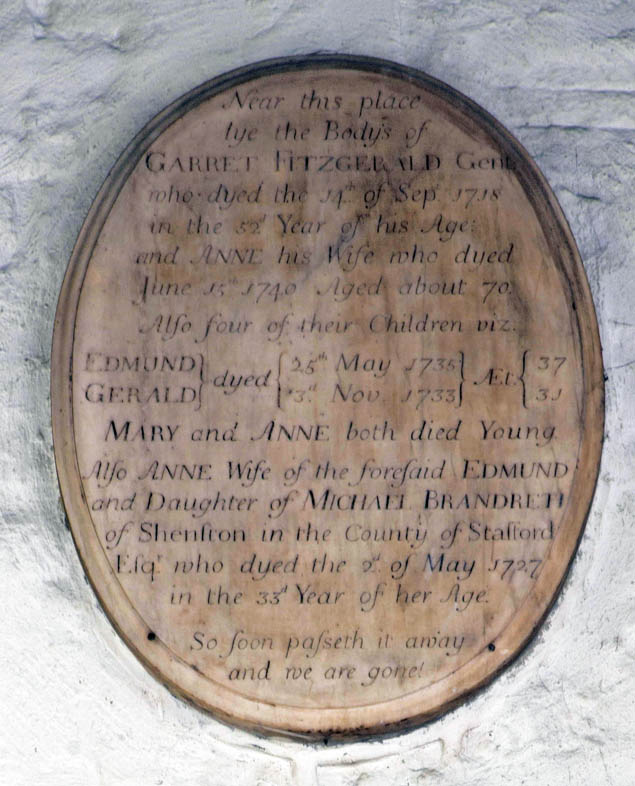 Near this place
lye the Body's of
GARRET FITZGERALD Gent.
who dyed the 14th of Sep. 1718
in the 52d Year of his Age:
and ANNE his Wife who dyed
June 15th 1740 Aged about 70.
Alſo four of their Children viz.
EDMUND } dyed { 25th May 1735 } Æt. { 37
GERALD } { 3d Nov. 1733 } { 31
MARY and ANNE both died Young.
Alſo ANNE Wife of the foreſaid EDMUND
and Daughter of MICHAEL BRANDRETH
of Shenſton in the County of Stafford
Eſqr who dyed the 2d of May 1727
in the 33d Year of her Age.
So ſoon paſseth it away
and we are gone!